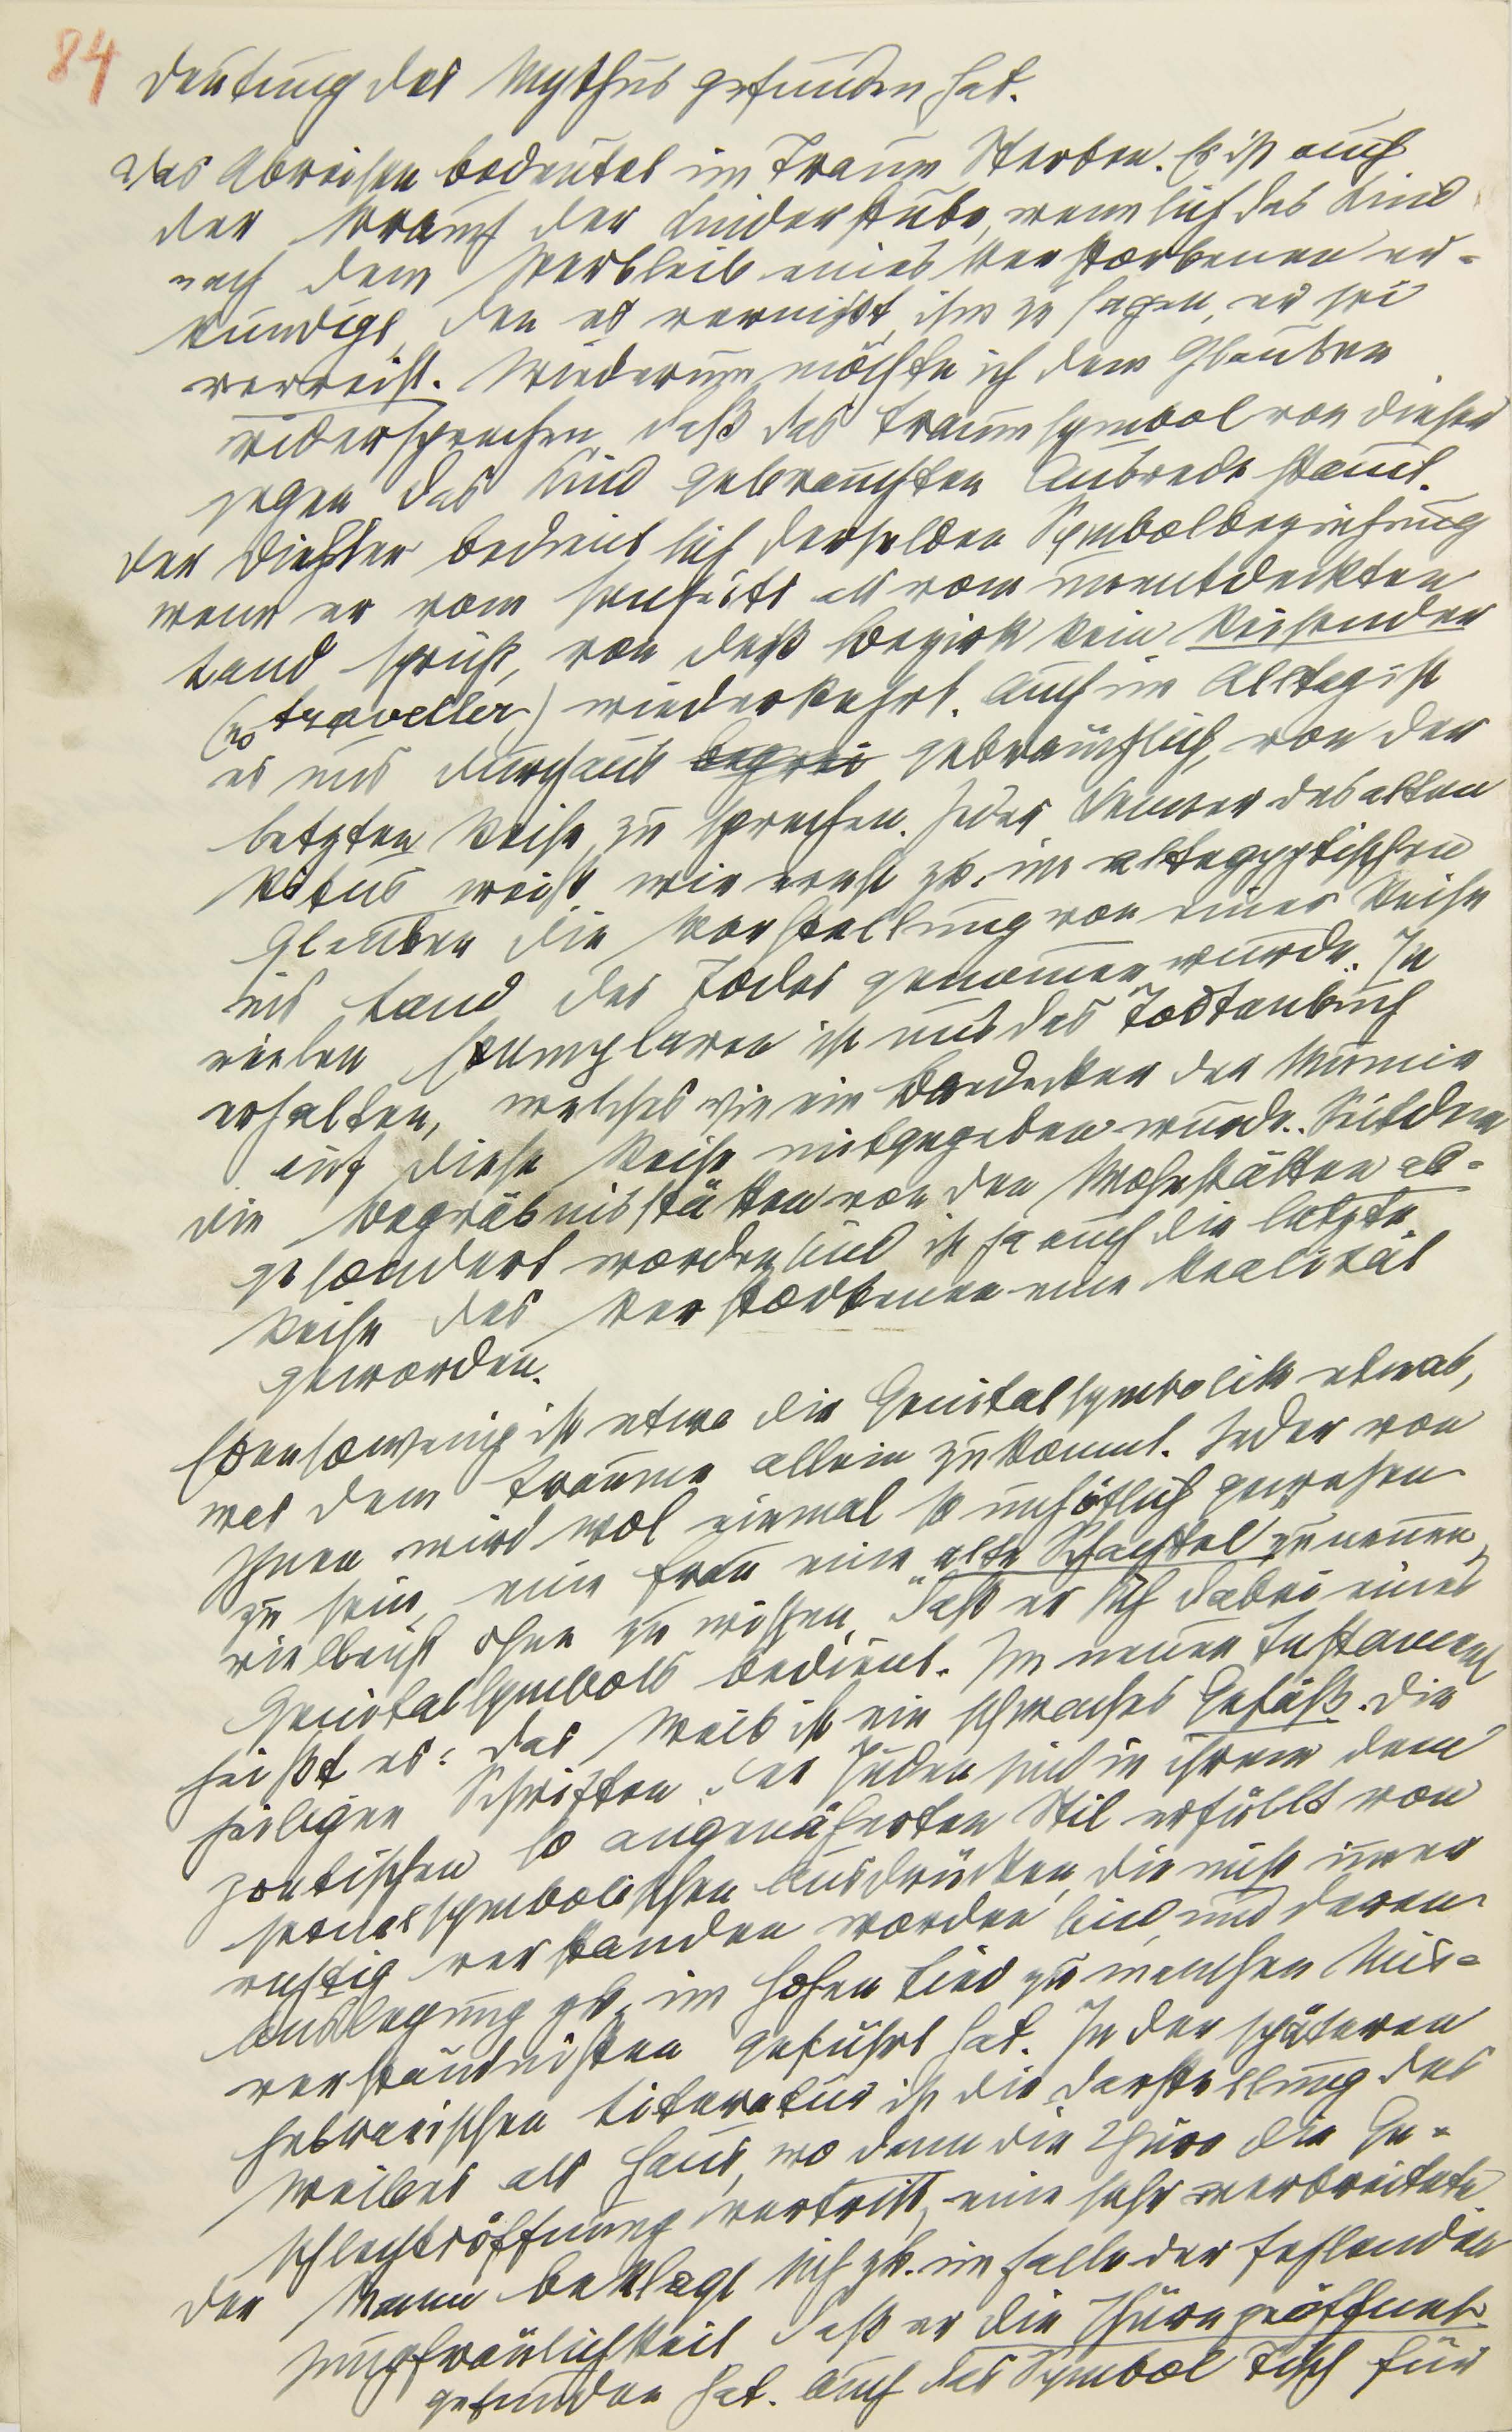 84
Deutung des Mythus gefunden hat.
Das Abreisen bedeutet im Traum Sterben. Es ist auch
der Brauch der Kinderstube, wenn sich das Kind
nach dem Verbleib eines Verstorbenen er-
kundigt, den es vermißt, ihm zu sagen, er sei
verreist. Wiederum möchte ich dem Glauben
widersprechen, daß das Traumsymbol von dieser
gegen das Kind gebrauchten Ausrede stamt.
Der Dichter bedient sich derselben Symbolbeziehung
wenn er vom Jenseits als vom unentdeckten
Land spricht, von deß Bezirk kein Reisender
(no traveller) wiederkehrt. Auch im Alltag ist
es uns durchaus begrei gebräuchlich, von der
letzten Reise zu sprechen. Jeder Kenner des alten
Ritus weiß, wie ernst zb. im altegyptischen
Glauben die Vorstellung von einer Reise
ins Land des Todes genomen wurde. In
vielen Exemplaren ist uns das Todtenbuch
erhalten, welches wie ein Baedeker der Mumie
auf diese Reise mitgegeben wurde. Seitdem
die Begräbnisstätten von den Wohnstätten ab-
gesondert worden sind ist ja auch die letzte
Reise des Verstorbenen eine Realität
geworden.
Ebensowenig ist etwa die Genitalsymbolik etwas,
was dem Traume allein zukomt. Jeder von
Ihnen wird wol einmal so unhöflich gewesen
zu sein, eine Frau eine alte Schachtel zu nenen,
vielleicht ohne zu wissen, daß er sich dabei eines
Genitalsymbols bedient. Im neuen Testament
heißt es: das Weib ist ein schwaches Gefäß. Die
heiligen Schriften der Juden sind in ihrem dem
poetischen so angenäherten Stil erfüllt von
sexualsymbolischen Ausdrücken, die nicht imer
richtig verstanden worden sind, und deren
Auslegung zb. im hohen Lied zu manchen Mis-
verständnissen geführt hat. In der späteren
hebraeischen Literatur ist die Darstellung des
Weibes als Haus, wo denn die Thüre die Ge-
schlechtsöffnung vertritt, eine sehr verbreitete.
Der Mann beklagt sich zb. im Falle der fehlenden
Jungfräulichkeit daß er die Thüre geöffnet
gefunden hat. Auch das Symbol Tisch für